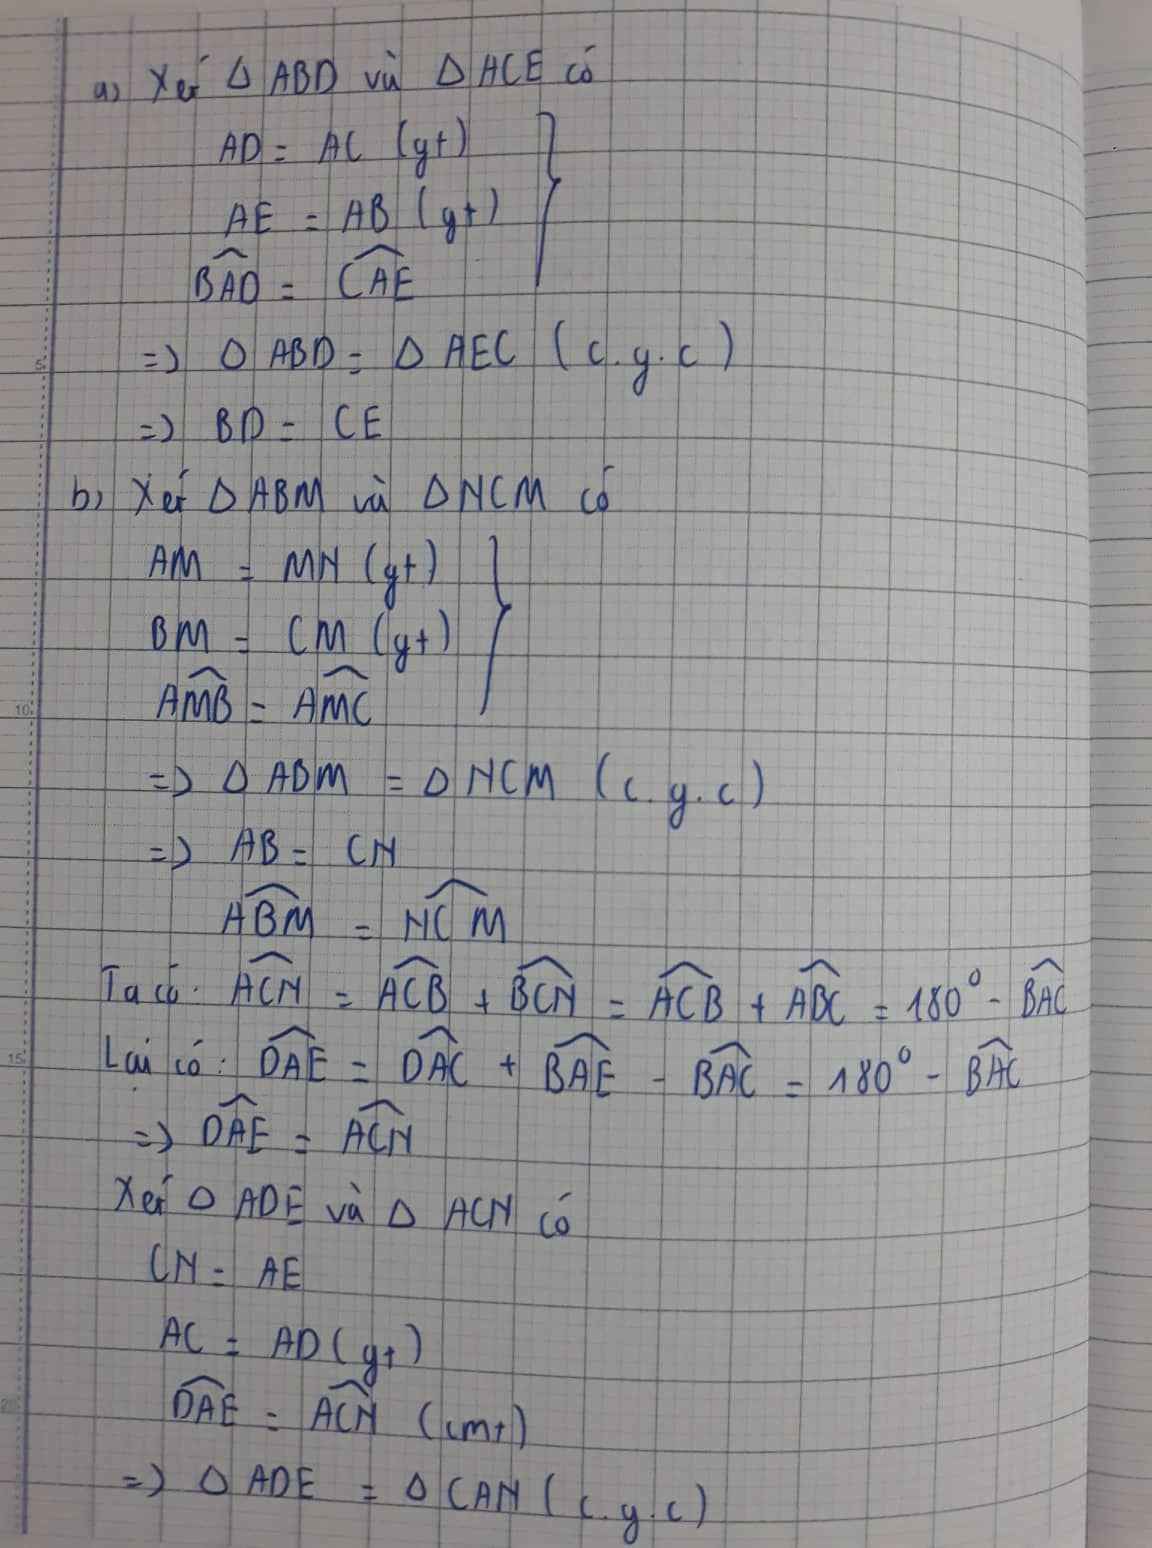 a) Xét Δ ABD và Δ ACE có
AD = AC (gt)
AE = AB (gt)
BAD̂ = CAÊ
=> Δ ABD = Δ AEC (c.g.c)
=> BD = CE
b) Xét Δ ABM và Δ NCM có
AM = MN (gt)
BM = CM (gt)
AMB̂ = AMĈ
=> Δ ABM = Δ NCM (c.g.c)
=> AB = CN
ABM̂ = NCM̂
Ta có: ACN̂ = ACB̂ + BCN̂ = ACB̂ + ABĈ = 180° - BAĈ
Lại có: DAÊ = DAĈ + BAÊ - BAĈ = 180° - BAĈ
=> DAÊ = ACN̂
Xét Δ ADE và Δ ACN có
CN = AE
AC = AD (gt)
DAÊ = ACN̂ (cmt)
=> Δ ADE = Δ CAN (c.g.c)
5
10
15
20